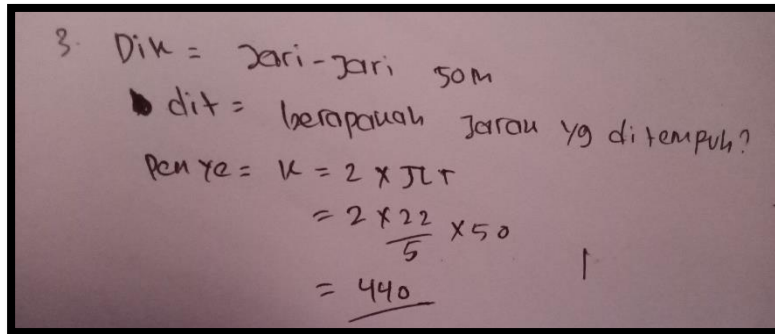 3. Dik = Jari-Jari 50m
dit = berapakah Jarak yg ditempuh?
Penye = K = 2 x πr
= 2 x 22/5 x 50
= 440